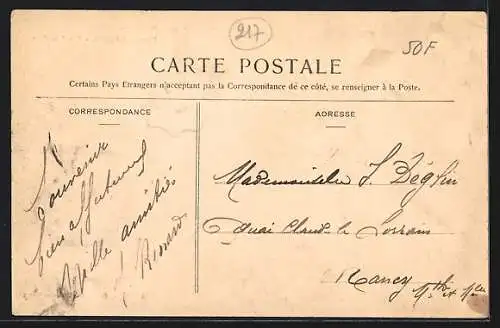 217
50F
CARTE POSTALE
Certains Pays Etrangers n'acceptant pas la Correspondance de ce côté, se renseigner à la Poste.
CORRESPONDANCE
Souvenir
bien affectueux
Mille amitiés
J. Renard
ADRESSE
Mademoiselle J. Déglin
Quai Claude le Lorrain
Nancy